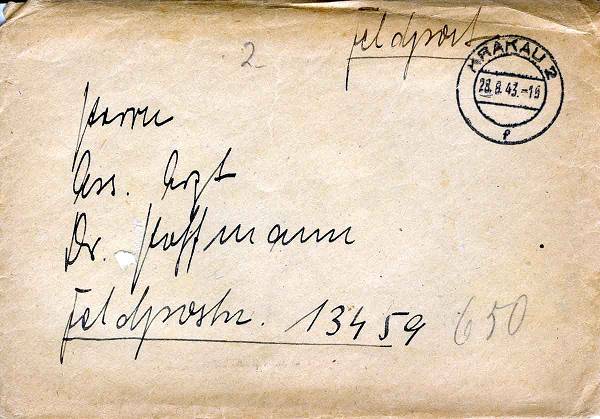 Feldpost
2
KRAKAU 2
28.8.43.-19
f
Herrn
Ass. Arzt
Dr. Hoffmann
Feldpostnr. 13459
650